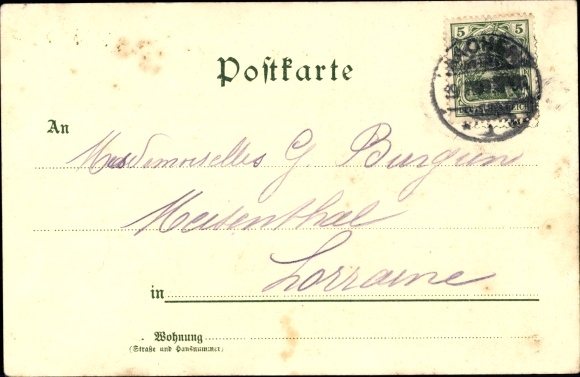 5 5
Postkarte
An
Mesdemoiselles G. Burgun
Meisenthal
in Lorraine
Wohnung
(Straße und Hausnummer)